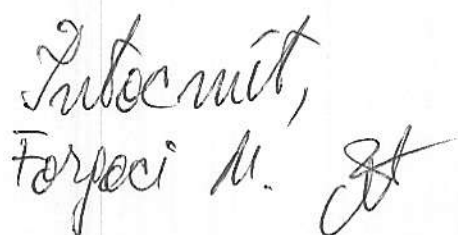 Întocmit,
Forgaci M.